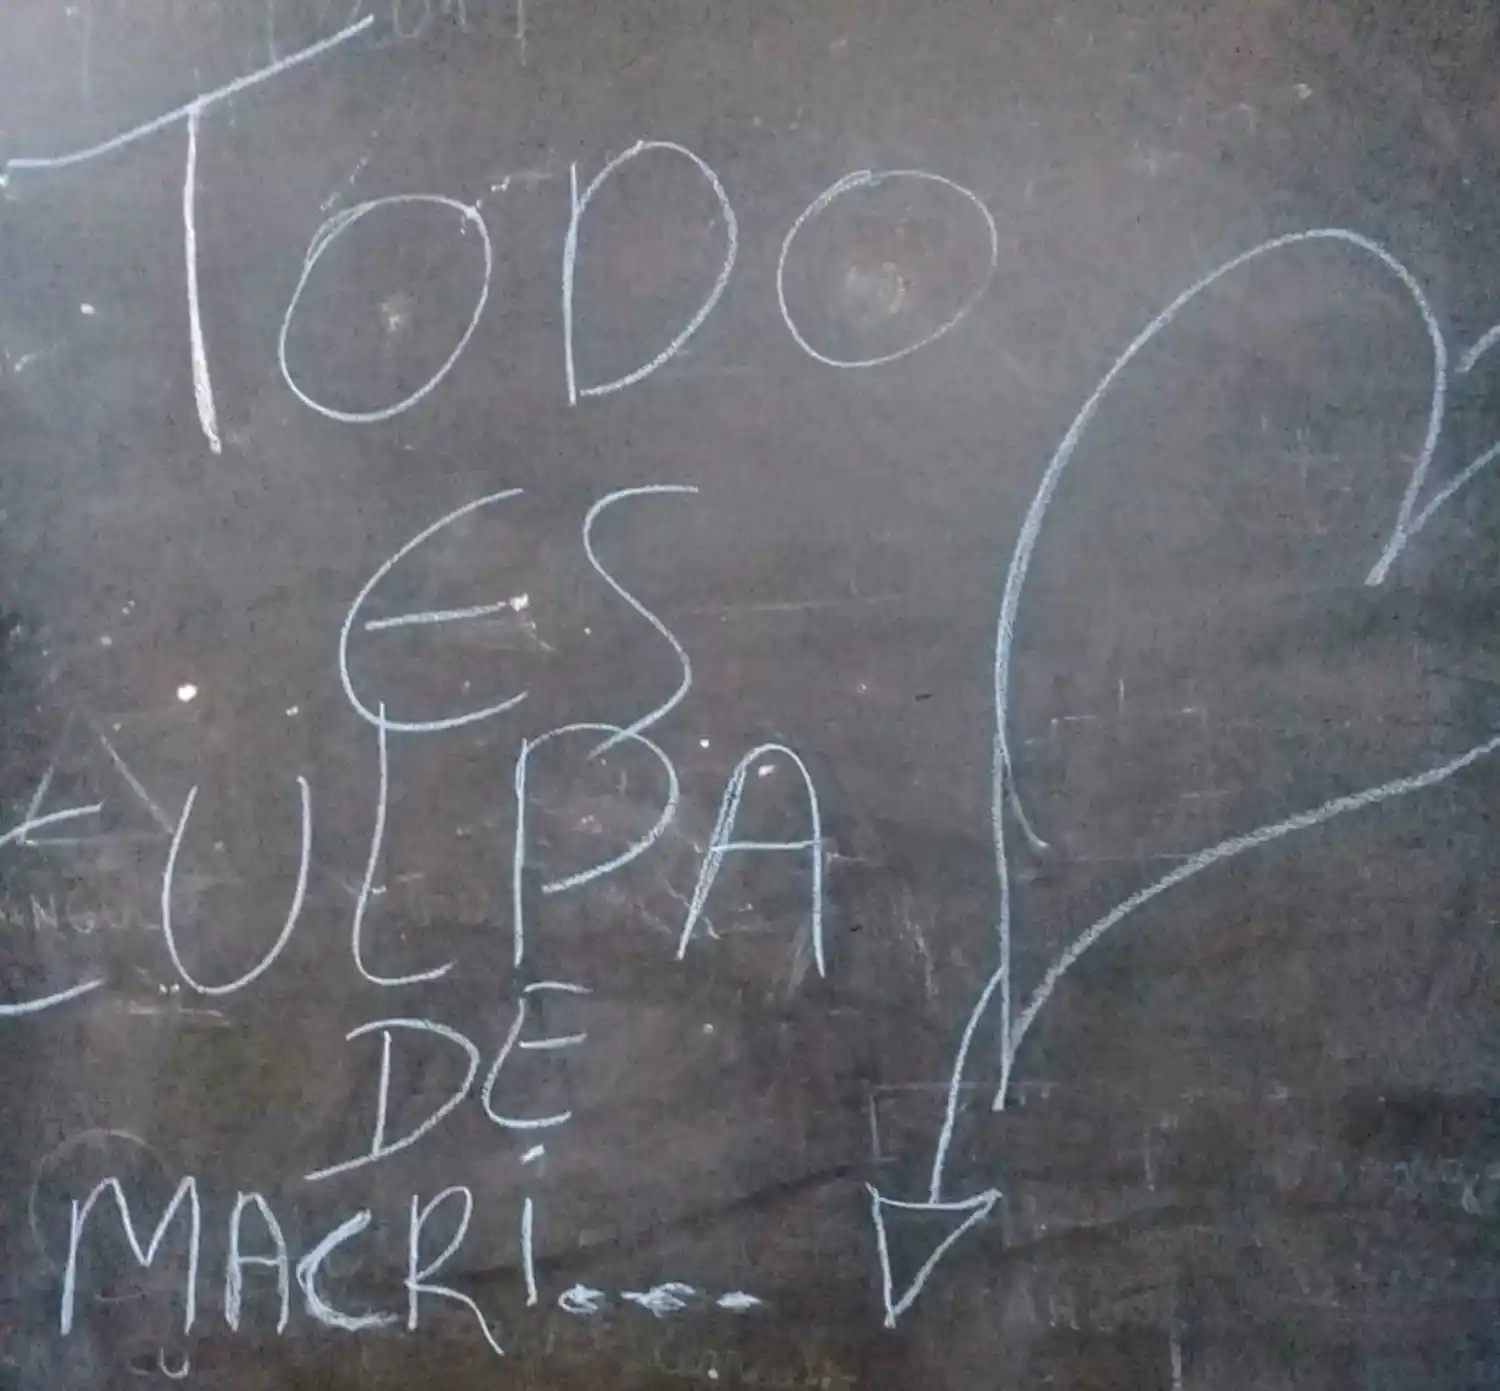 TODO
ES
CULPA
DE
MACRi...